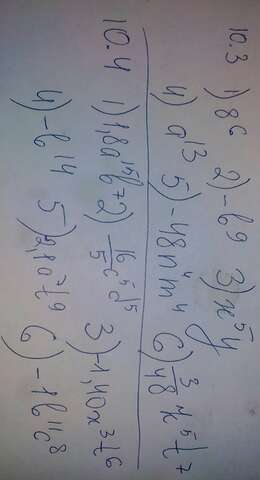 10.3 1) 8c 2) -b⁹ 3) x⁵y
4) a¹³ 5) -48n⁴m⁴ 6) 3/48 x⁵t⁷
10.4 1) 1,8a¹⁵b⁷ 2) -16/5 c⁵d⁵ 3) -1,40x³t⁶
4) -b¹⁴ 5) 2,8a⁷b⁹ 6) -1b¹¹c⁸